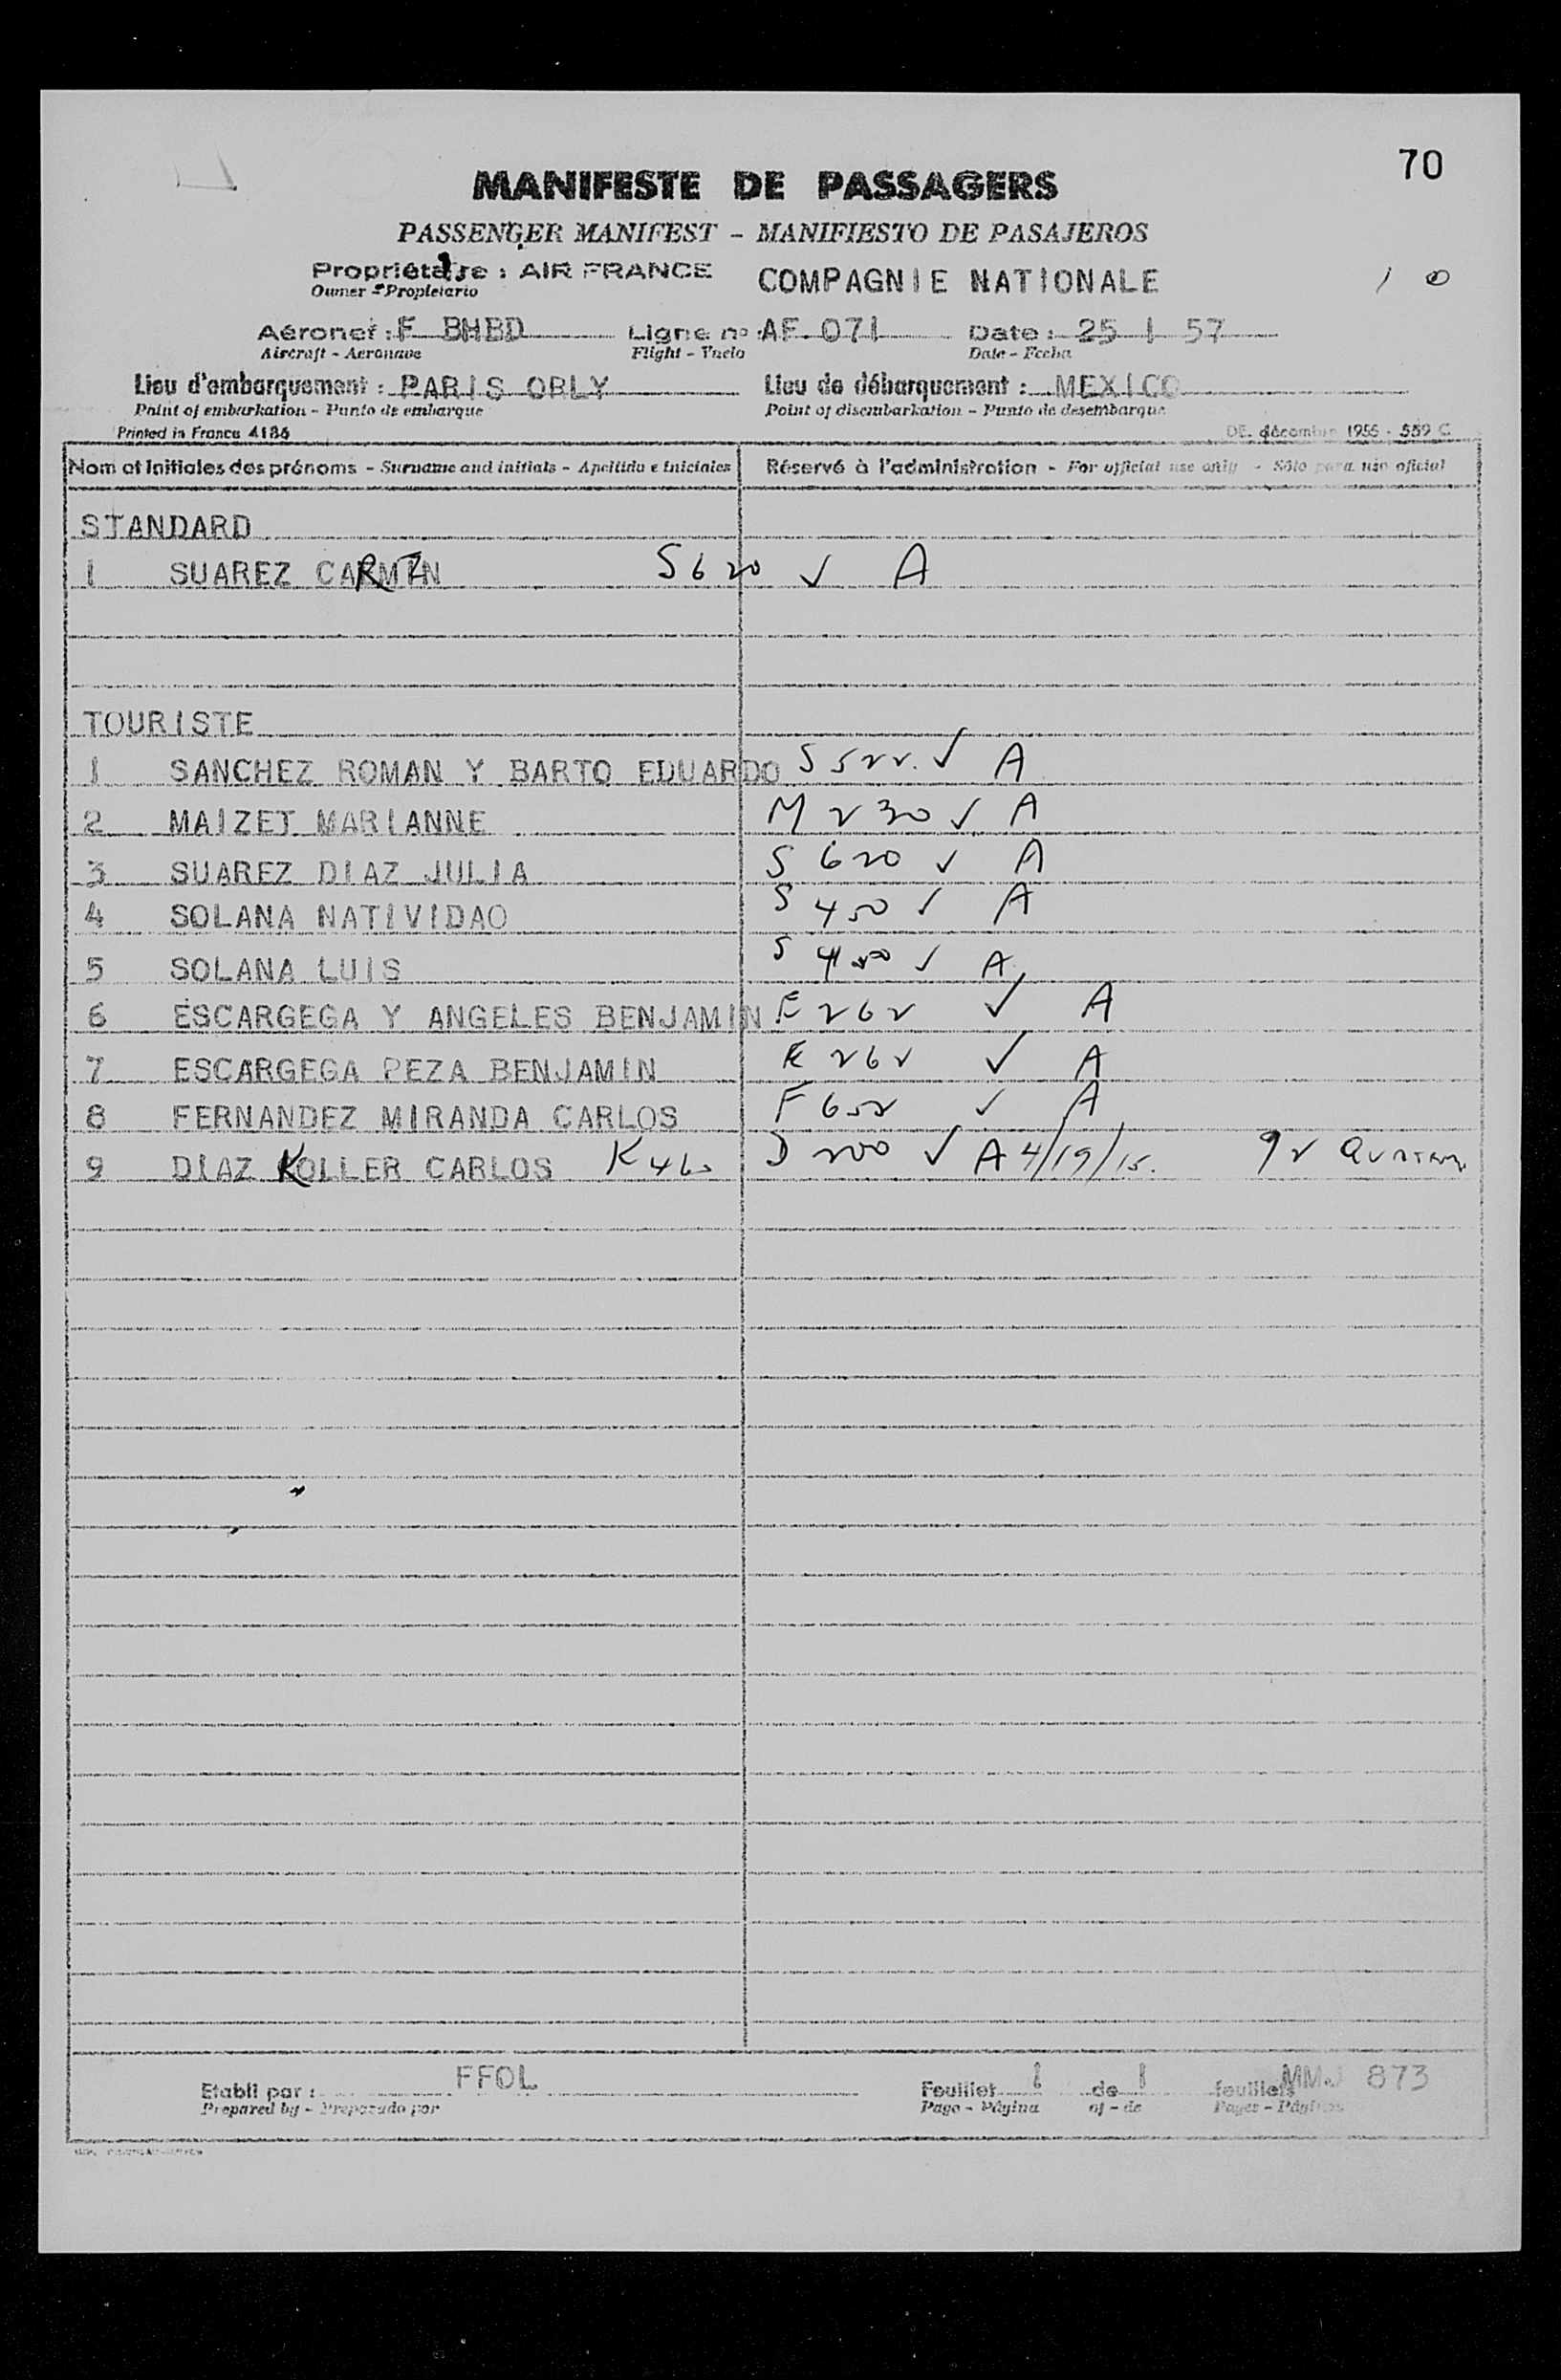 70
MANIFESTE DE PASSAGERS
PASSENGER MANIFEST - MANIFIESTO DE PASAJEROS
Propriétaire : AIR FRANCE COMPAGNIE NATIONALE 1 0
Owner - Propietario
Aéronef : F BHBD Ligne no AF 071 Date : 25 1 57
Aircraft - Aeronave Flight - Vuelo Date - Fecha
Lieu d'embarquement : PARIS ORLY Lieu de débarquement : MEXICO
Point of embarkation - Punto de embarque Point of disembarkation - Punto de desembarque
Printed in France 4186 DE. décembre 1955 - 559 C
Nom et Initiales des prénoms - Surname and initials - Apellido e iniciales Réservé à l'administration - For official use only - Sólo para uso oficial
STANDARD
1 SUAREZ CARMEN S620 ✓ A
TOURISTE
1 SANCHEZ ROMAN Y BARTO EDUARDO S522 ✓ A
2 MAIZET MARIANNE M230 ✓ A
3 SUAREZ DIAZ JULIA S620 ✓ A
4 SOLANA NATIVIDAO S450 ✓ A
5 SOLANA LUIS S450 ✓ A
6 ESCARGEGA Y ANGELES BENJAMIN E262 ✓ A
7 ESCARGEGA PEZA BENJAMIN E262 ✓ A
8 FERNANDEZ MIRANDA CARLOS F652 ✓ A
9 DIAZ KOLLER CARLOS K460 D200 ✓ A 4/19/15.
Etabli par : FFOL Feuillet 1 de 1 feuillets MMJ 873
Prepared by - Preparado por Page - Página of - de Pages - Páginas